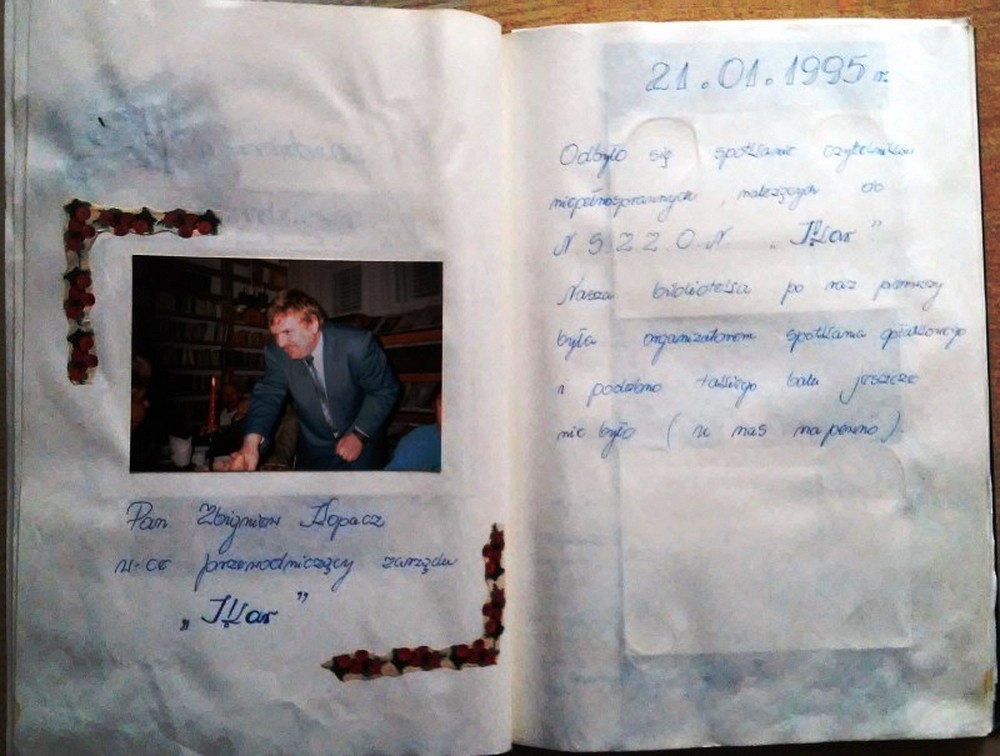 Pan Zbigniew Kopacz
v-ce przewodniczący zarządu
„Ikar”
21.01.1995 r.
Odbyło się spotkanie czytelników
niepełnosprawnych, należących do
N.S.Z.Z.O.N. „Ikar”
Nasza biblioteka po raz pierwszy
była organizatorem spotkania opłatkowego
i podobno takiego balu jeszcze
nie było (u nas napewno).